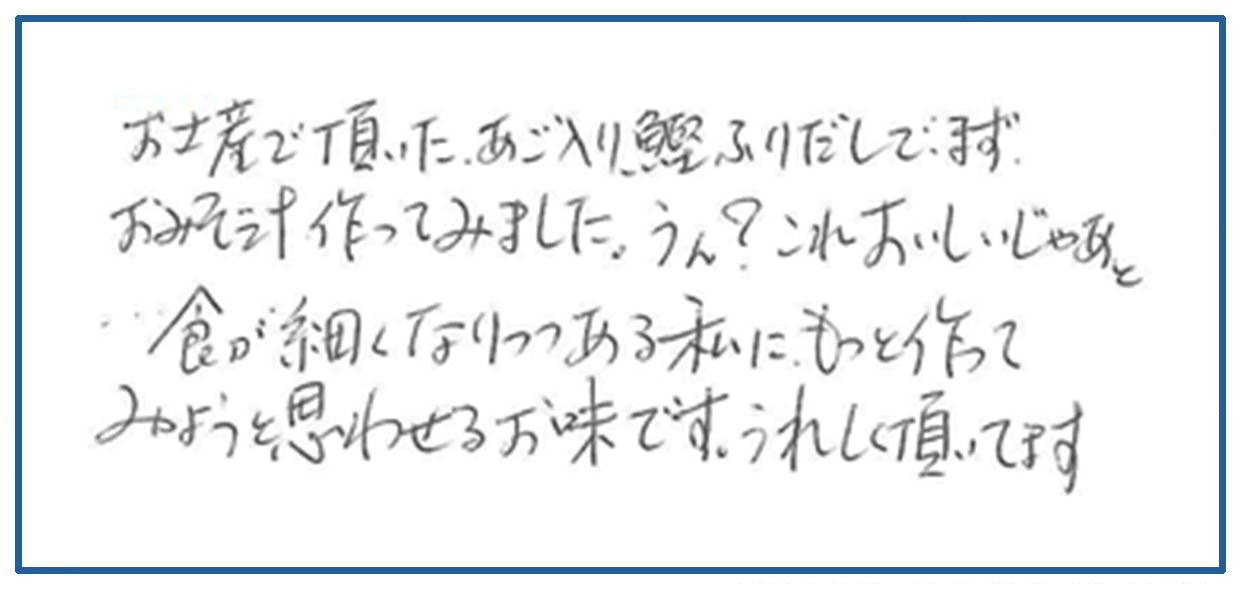 お土産で頂いた、あご入り鰹ふりだしで、まず、
おみそ汁作ってみました。うん?これおいしいじゃあと
…食が細くなりつつある私に、もっと作って
みようと思わせるお味です。うれしく頂いてます